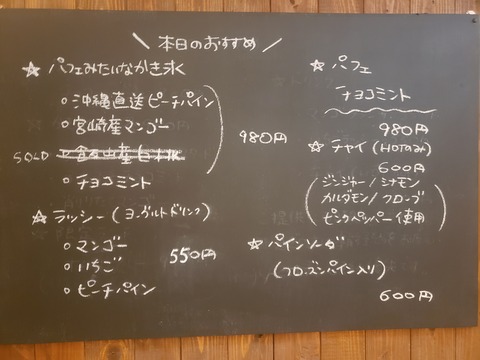 ＼ 本日のおすすめ ／
☆ パフェみたいなかき氷
○ 沖縄直送ピーチパイン
○ 宮崎産マンゴー
SOLD
○ チョコミント
980円
☆ ラッシー (ヨーグルトドリンク)
○ マンゴー
○ いちご
○ ピーチパイン
550円
☆ パフェ
チョコミント
980円
☆ チャイ (HOTのみ)
600円
(ジンジャー/シナモン
カルダモン/クローブ
ピンクペッパー使用)
☆ パインソーダ
(フローズンパイン入り)
600円